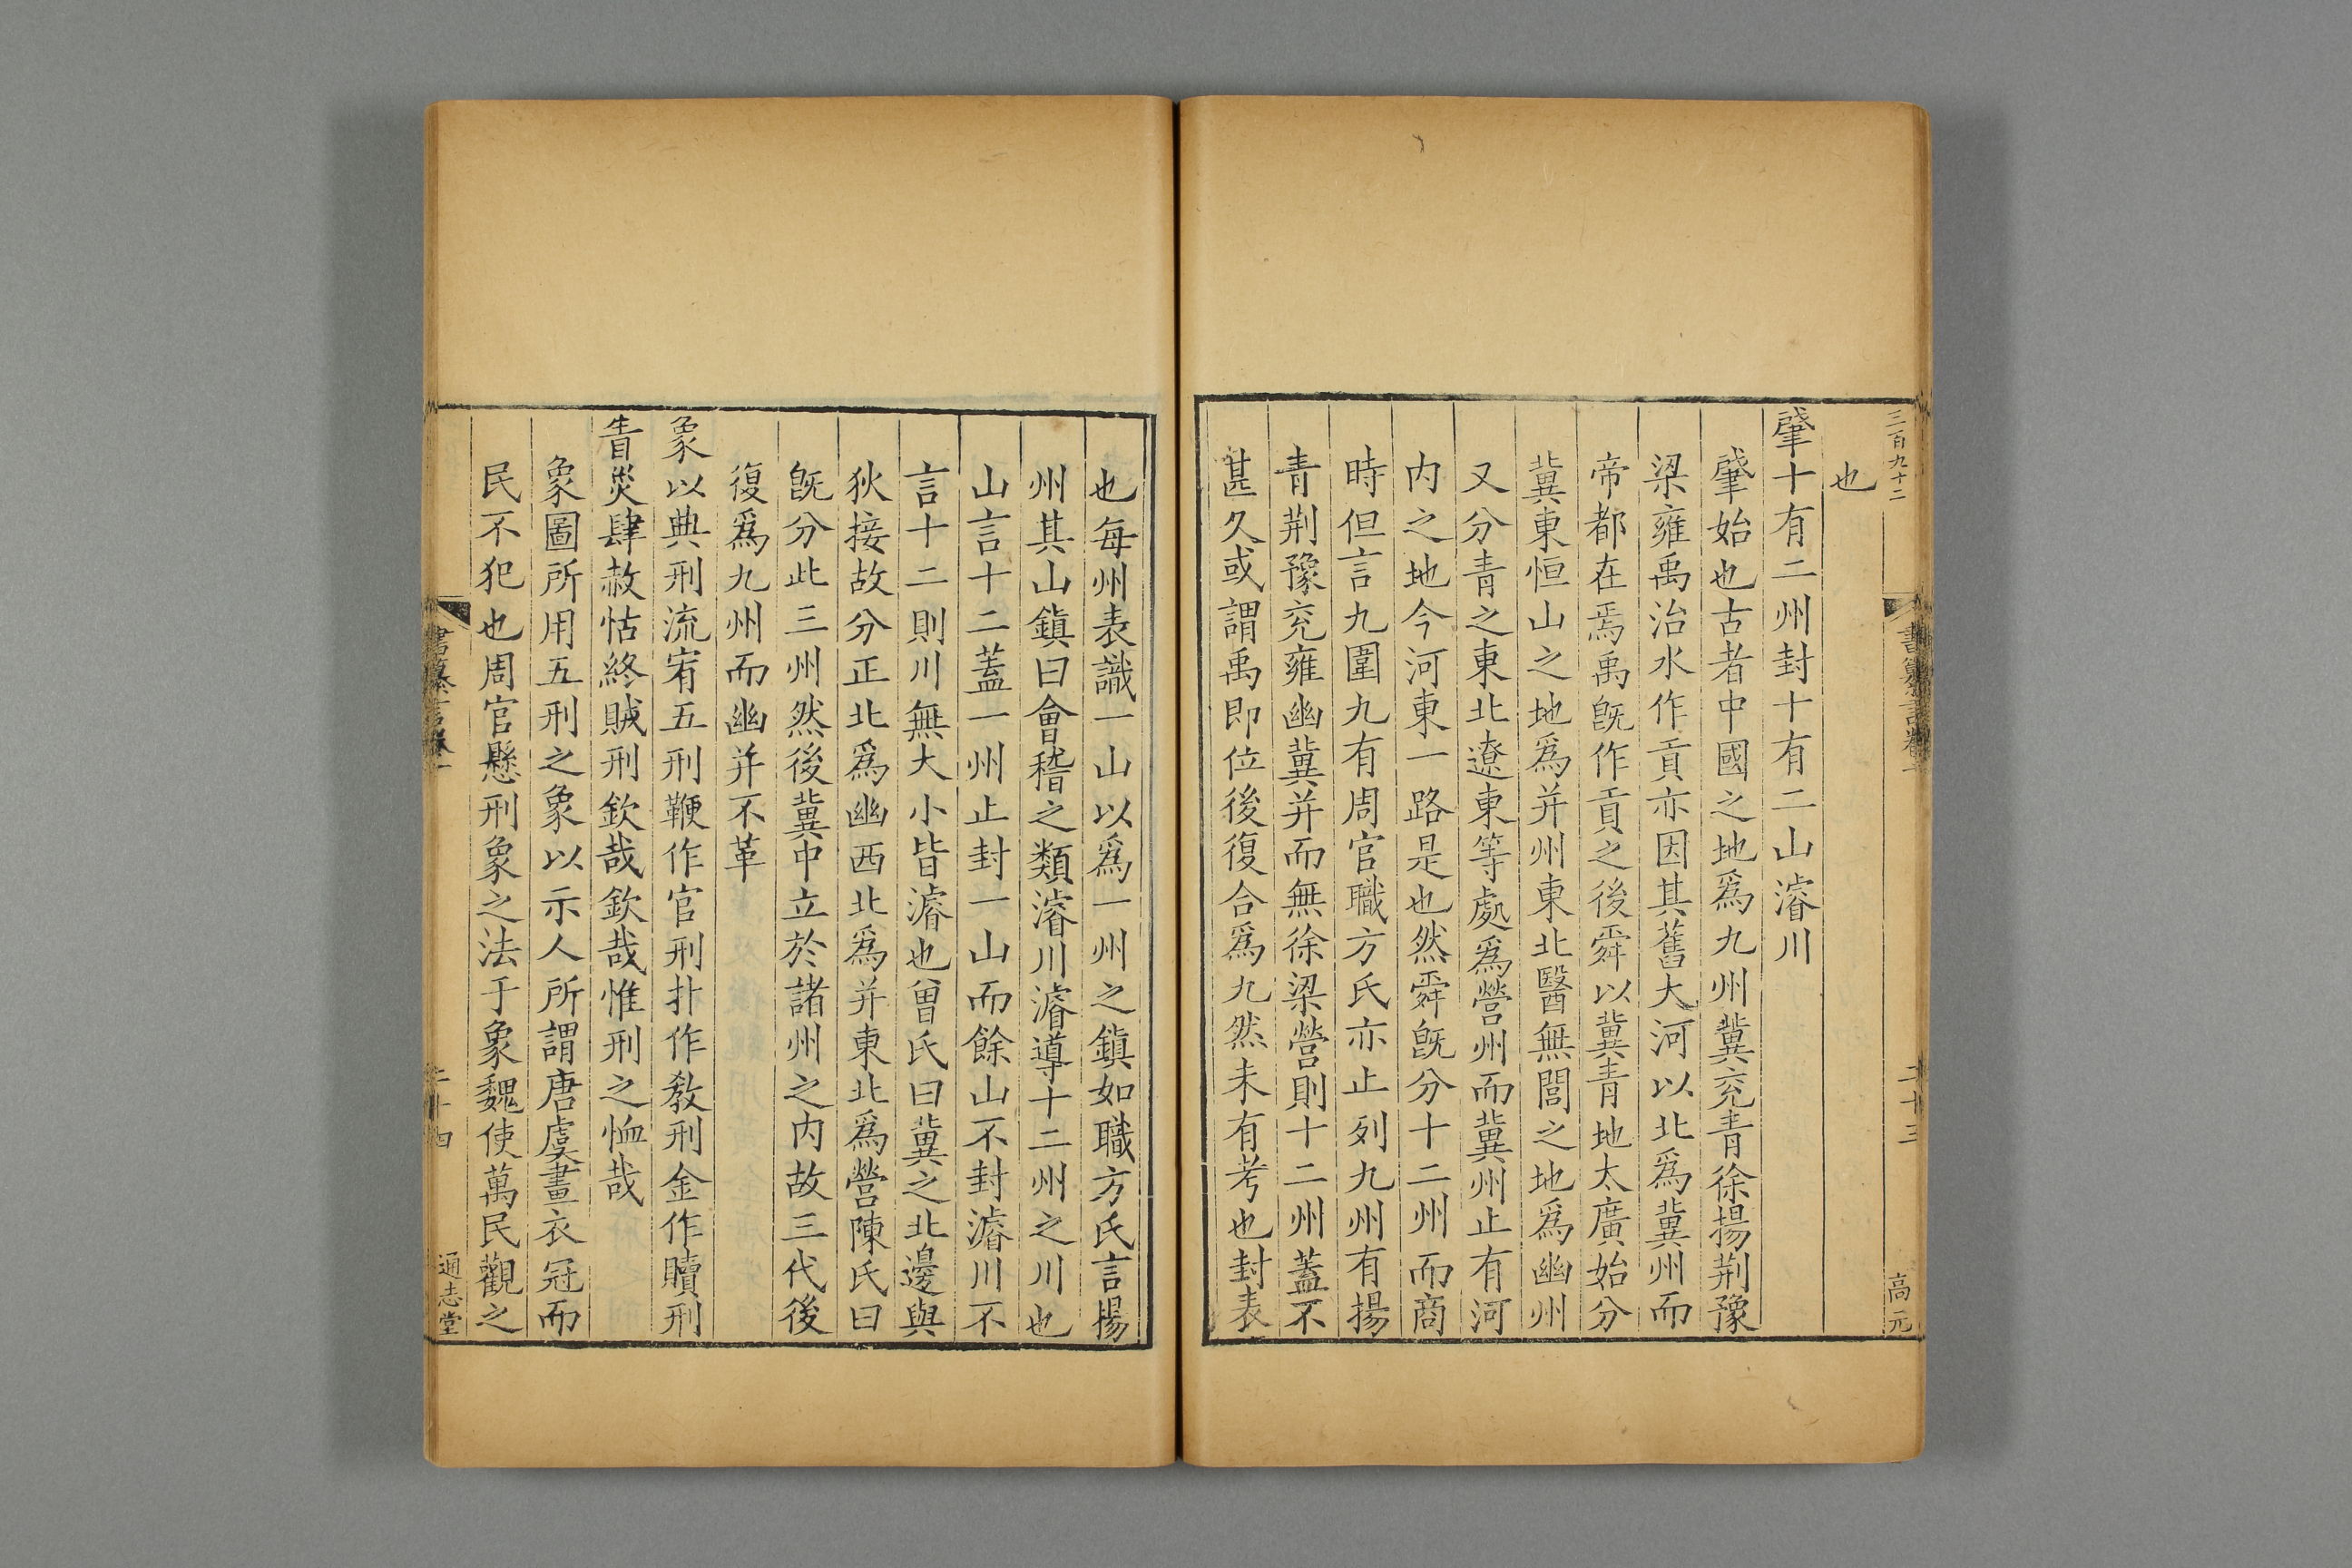 三百九十二
書纂言卷一
二十三
高元
也
肇十有二州封十有二山濬川
肇始也古者中國之地爲九州兾兖青徐揚荆豫
梁雍禹治水作貢亦因其舊大河以北爲兾州而
帝都在焉禹旣作貢之後舜以兾青地太廣始分
兾東恒山之地爲并州東北醫無閭之地爲幽州
又分青之東北遼東等處爲營州而兾州止有河
内之地今河東一路是也然舜旣分十二州而商
時但言九圍九有周官職方氏亦止列九州有揚
青荆豫兖雍幽兾并而無徐梁營則十二州蓋不
甚久或謂禹即位後復合爲九然未有考也封表
也每州表識一山以爲一州之鎮如職方氏言揚
州其山鎮曰會稽之類濬川濬導十二州之川也
山言十二蓋一州止封一山而餘山不封濬川不
言十二則川無大小皆濬也曾氏曰兾之北邊與
狄接故分正北爲幽西北爲并東北爲營陳氏曰
旣分此三州然後兾中立於諸州之内故三代後
復爲九州而幽并不革
象以典刑流宥五刑鞭作官刑扑作敎刑金作贖刑
眚災肆赦怙終賊刑欽哉欽哉惟刑之恤哉
象圖所用五刑之象以示人所謂唐虞畫衣冠而
民不犯也周官懸刑象之法于象魏使萬民觀之
書纂言卷一
二十四
通志堂